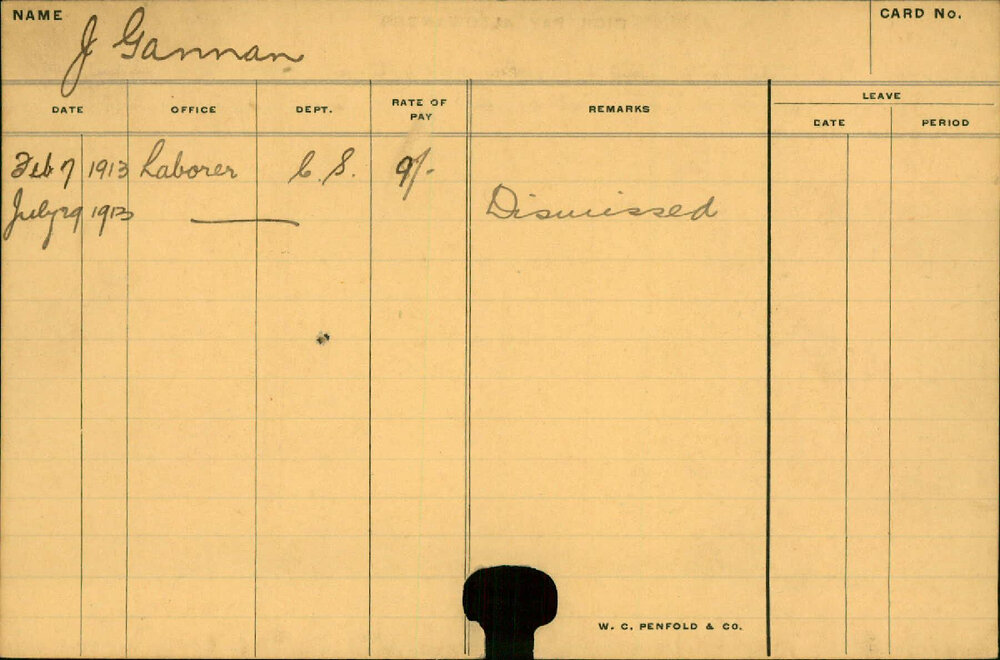 NAME J Gannan CARD No.
DATE OFFICE DEPT. RATE OF PAY REMARKS LEAVE
DATE PERIOD
Feb 7 1913 Laborer C. S. 9/-
July 29 1913 — Dismissed
W. C. PENFOLD & CO.